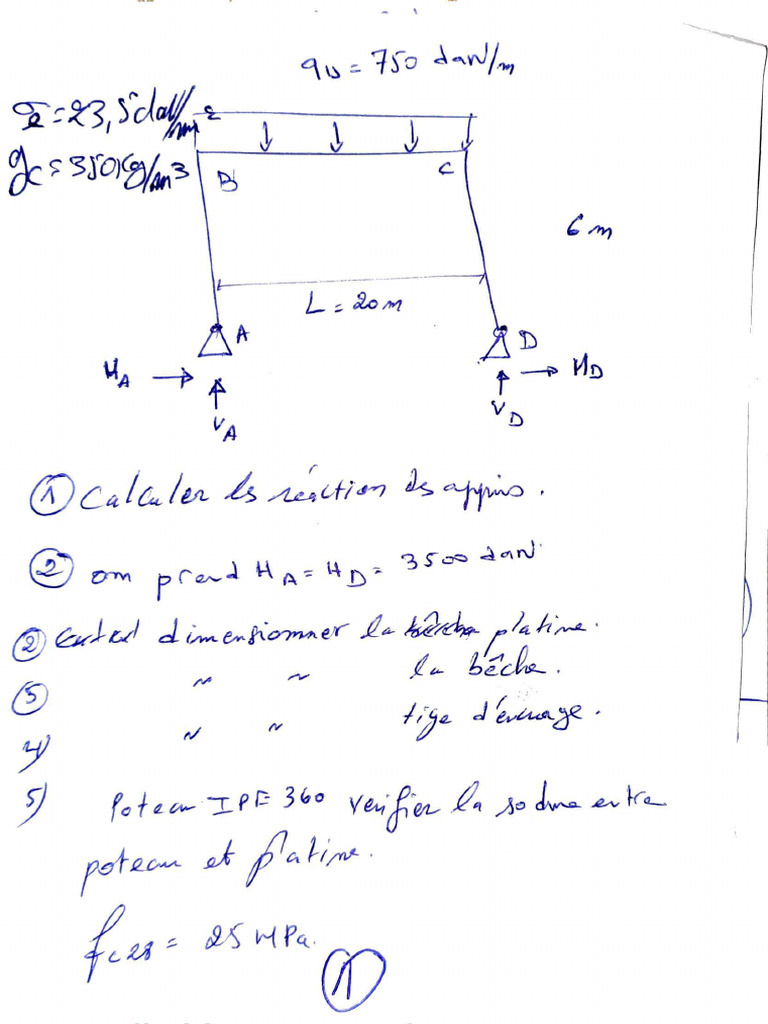 qu = 750 daN/m
σe = 23,5 daN/mm²
gc = 350 Kg/m3
B
C
6 m
L = 20 m
A
D
HA
HD
VA
VD
① Calculer les réaction des appuis.
② om prend HA = HD = 3500 daN
② dimensionner la platine.
③ " " la bêche.
4) " " tige d'encrage.
5) Poteau IPE 360 verifier la sodure entre
poteau et platine.
fc28 = 25 MPa.
①